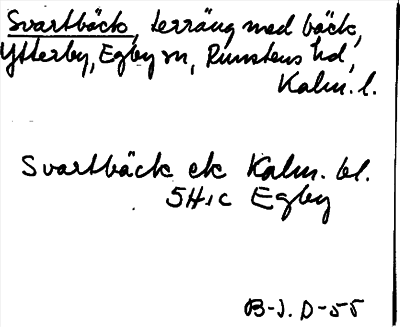 Svartbäck, terräng med bäck,
Ytterby, Egby sn, Runstens hd,
Kalm. l.
Svartbäck ek Kalm. bl.
5H1c Egby
B-J. D-55